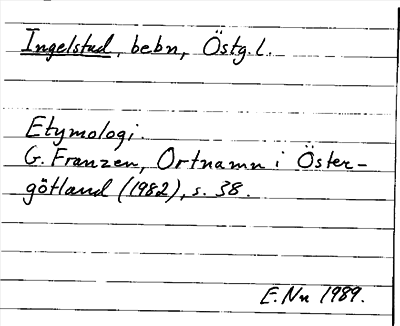 Ingelstad, bebn, Östg.l.
Etymologi.
G. Franzén, Ortnamn i Öster-
götland (1982), s. 38.
E.Nn 1989.